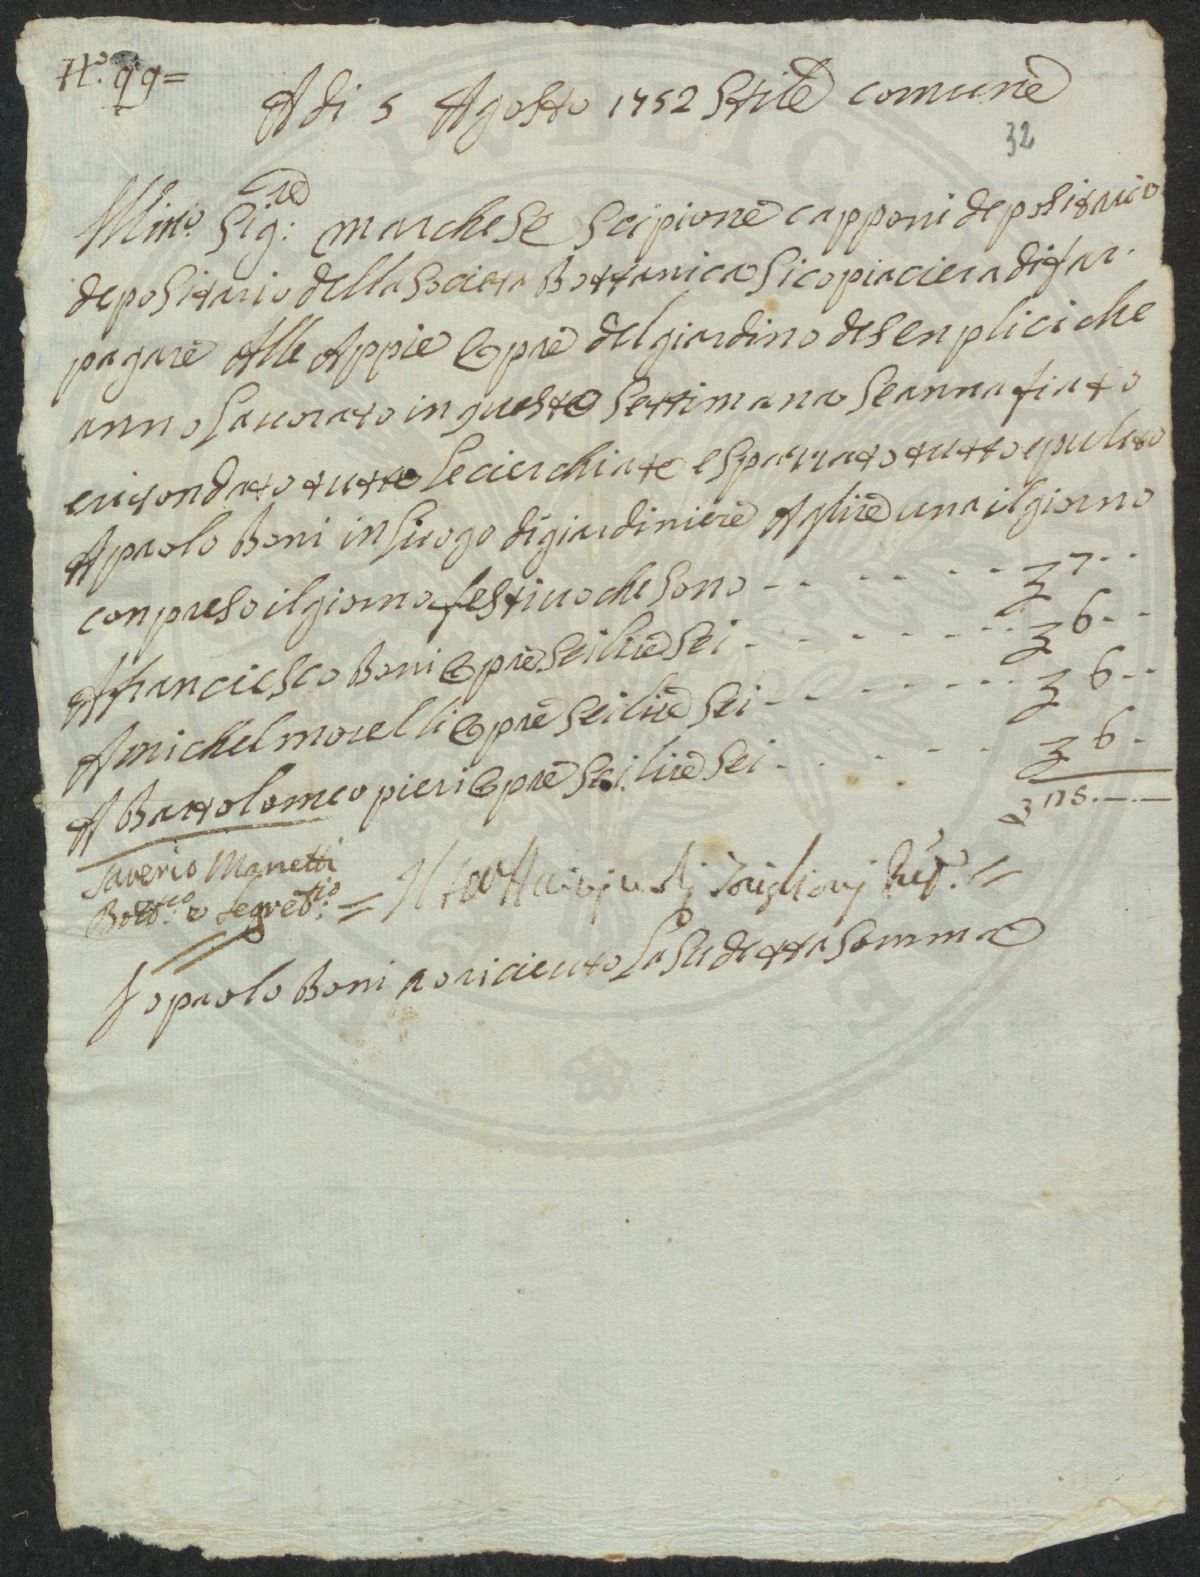 N.º 99=
Adi 5 Agosto 1752 Stile comune
32
Illmo. Sig:re Marchese Scipione capponi depositario
depositario della Societa Bottanica Sicopiaciera difar.
pagare Alle Appie Opre delgiardino desenplici che
anno Lauorato in queste Settimana Seannafiato
eritondato tutte Lecierchiate espazzato tutto epulito
Apaolo Boni in Luogo digiardiniere Aglire una ilgiorno
conpreso ilgiorno festiuo che Sono - - - - - - 7 - -
Afranciesco Boni Opre Sei lire Sei - - - - - - 6 - -
Amichel morelli Opre Sei lire Sei - - - - - - - 6 - -
A Bartolomeo pieri Opre Sei lire Sei - - - - - 6 -
25.-.-
Saverio Manetti
Bott.co e Segret.rio =
Io paolo Boni o riceuto La Sudetta Somma